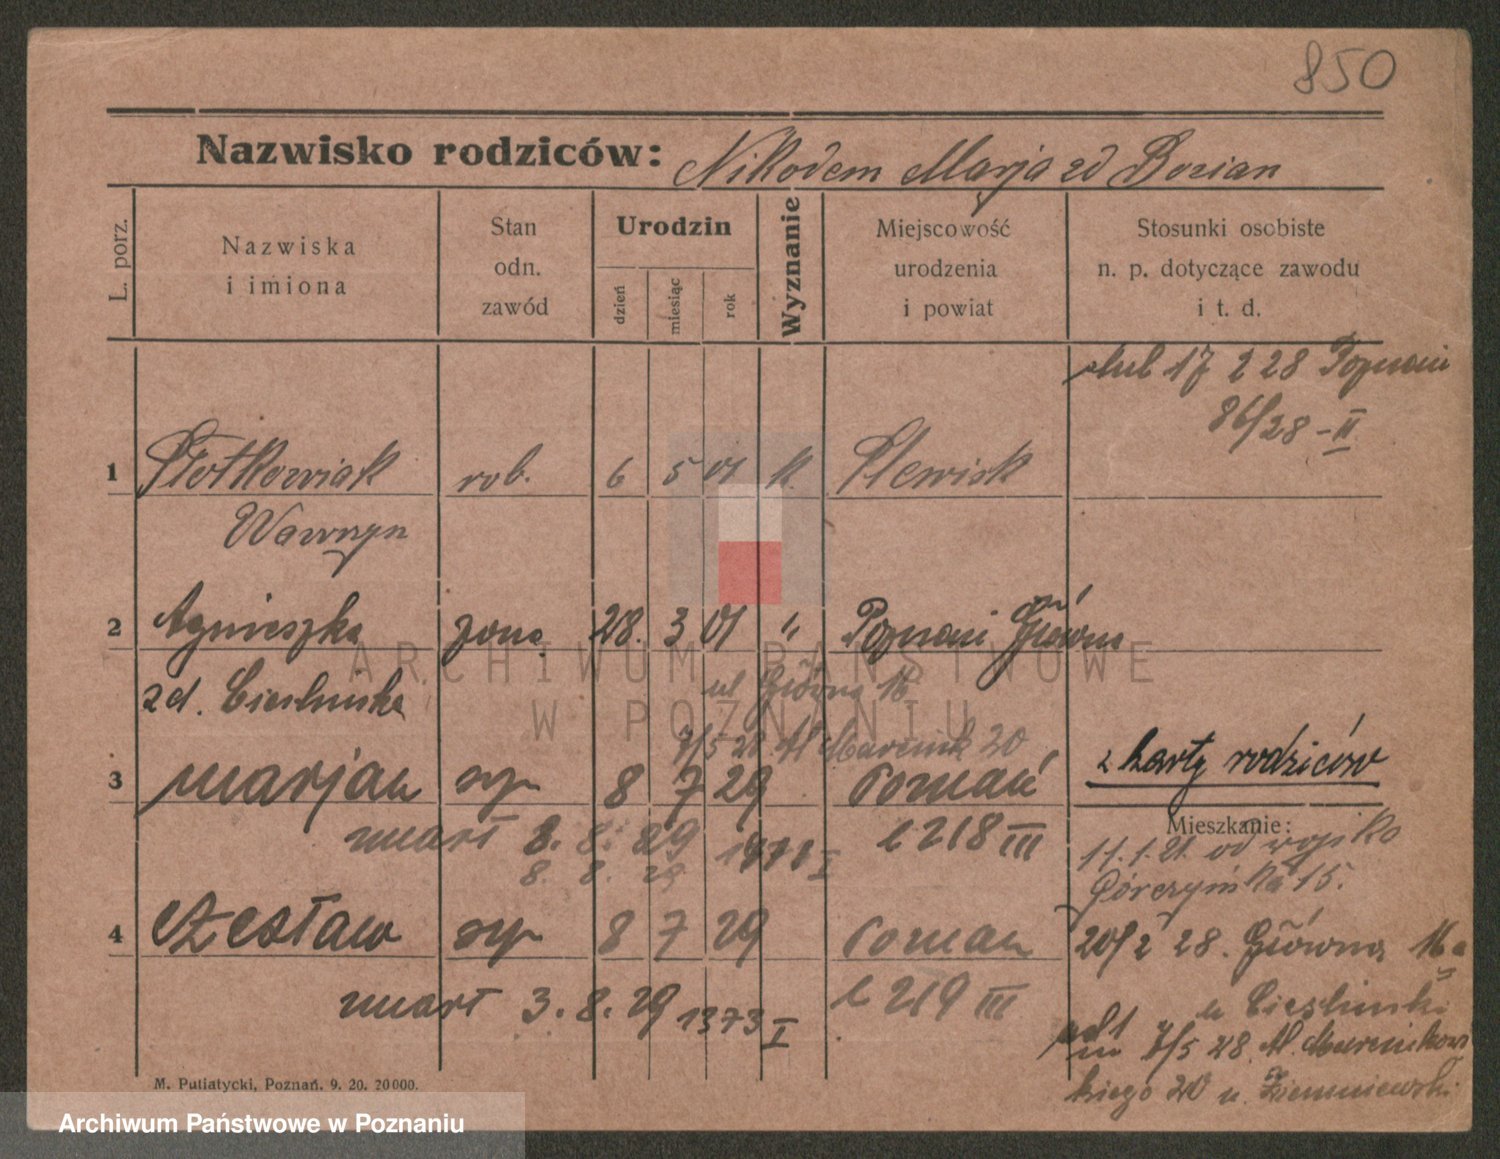 850
Nazwisko rodziców: Nikodem Marja zd Bozian
L. porz.
Nazwiska
i imiona
Stan
odn.
zawód
Urodzin
dzień
miesiąc
rok
Wyznanie
Miejscowość
urodzenia
i powiat
Stosunki osobiste
n. p. dotyczące zawodu
i t. d.
ślub 17 2 28 Poznań
86/28-II
1 rob. 6 5 01 k. Plewisk
Wawrzyn
2 Agnieszka żona 28. 3 01 " Poznań Główna
zd. Cieślińska
ul Główna 16
7/5 28. Al Marcink 20
3 Marjan syn 8 7 29 Poznań
z karty rodziców
umarł 8. 8. 29
l 218 III
8. 8. 29
Mieszkanie:
11.1.21. od wojsko
Górczyńska 15.
4 Czesław syn 8 7 29 Poznań
20/2 28. Główna 16a
umarł 3. 8. 29 1373 I
l 219 III
u Cieślinski
7/5 28. Al. Marcinkows
kiego 20 u.
M. Putiatycki, Poznań. 9. 20. 20000.
ARCHIWUM PAŃSTWOWE
W POZNANIU
Archiwum Państwowe w Poznaniu